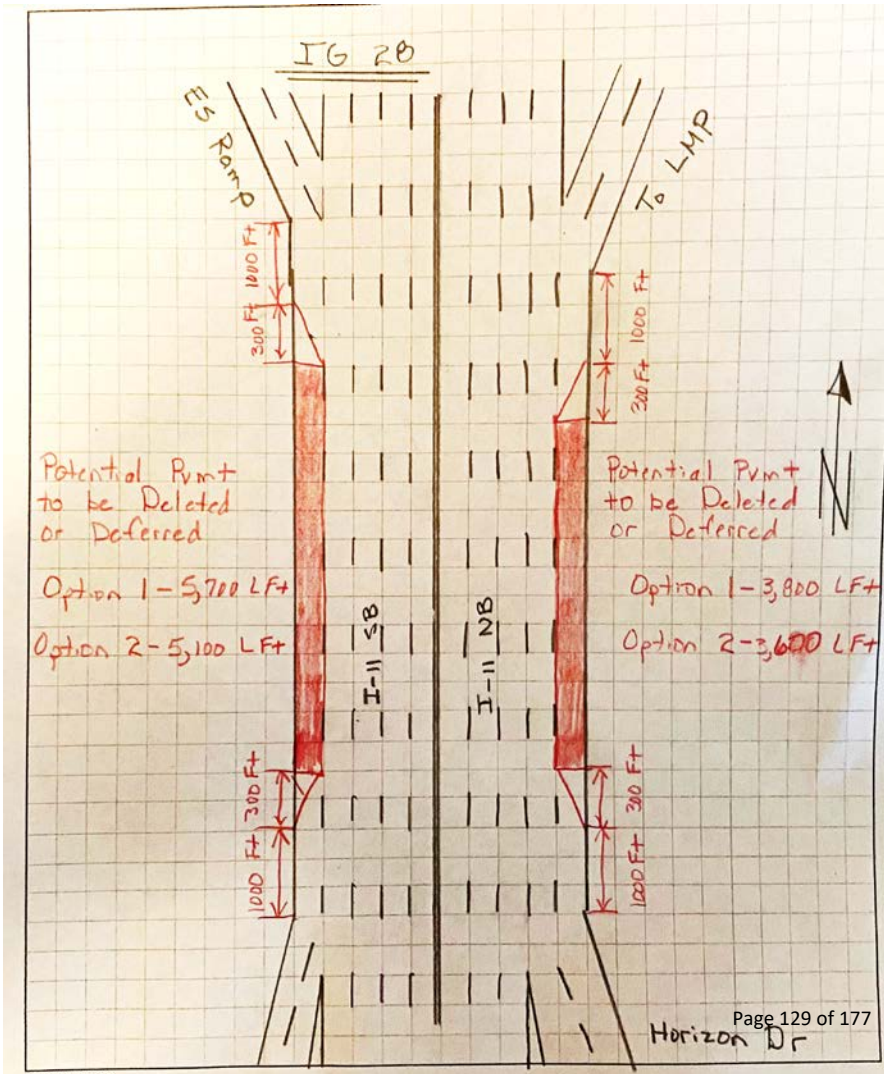 IG 28
ES Ramp
To LMP
1000 Ft
300 Ft
1000 Ft
300 Ft
N
Potential Pvmt
to be Deleted
or Deferred
Option 1-5,700 LFt
Option 2-5,100 LFt
I-11 SB
I-11 NB
Potential Pvmt
to be Deleted
or Deferred
Option 1-3,800 LFt
Option 2-3,600 LFt
300 Ft
1000 Ft
300 Ft
1000 Ft
Page 129 of 177
Horizon Dr